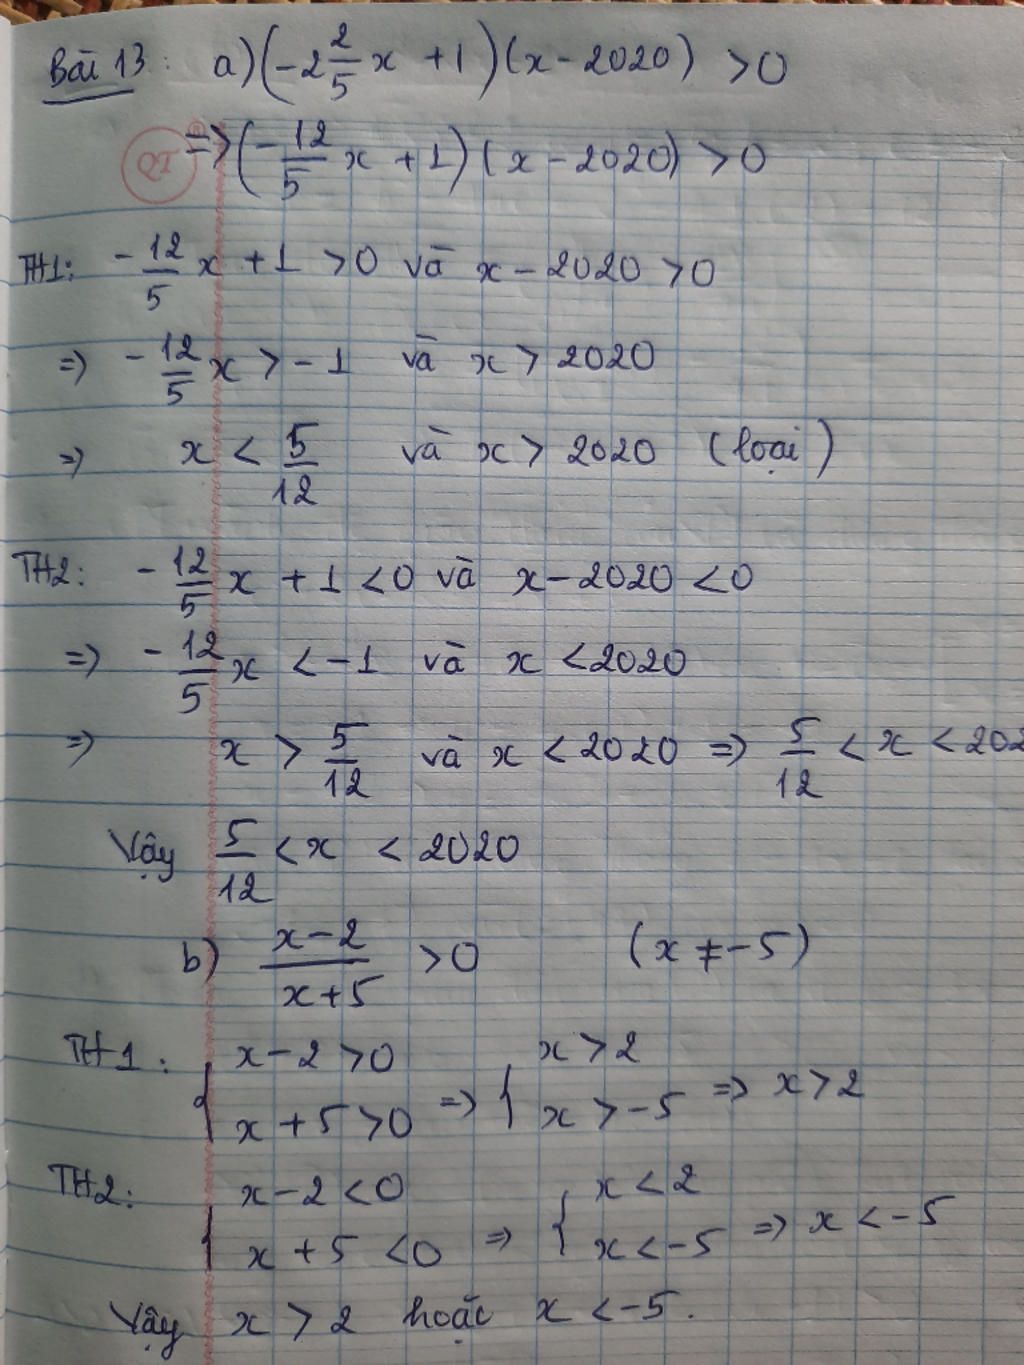 Bài 13: a) (-2 2/5 x + 1)(x - 2020) > 0
QT => (-12/5 x + 1)(x - 2020) > 0
TH1: -12/5 x + 1 > 0 và x - 2020 > 0
=> -12/5 x > -1 và x > 2020
=> x < 5/12 và x > 2020 (loại)
TH2: -12/5 x + 1 < 0 và x - 2020 < 0
=> -12/5 x < -1 và x < 2020
=> x > 5/12 và x < 2020 => 5/12 < x < 202
Vậy 5/12 < x < 2020
b) x-2/x+5 > 0 (x ≠ -5)
TH1: { x - 2 > 0 x + 5 > 0 => { x > 2 x > -5 => x > 2
TH2: { x - 2 < 0 x + 5 < 0 => { x < 2 x < -5 => x < -5
Vậy x > 2 hoặc x < -5.